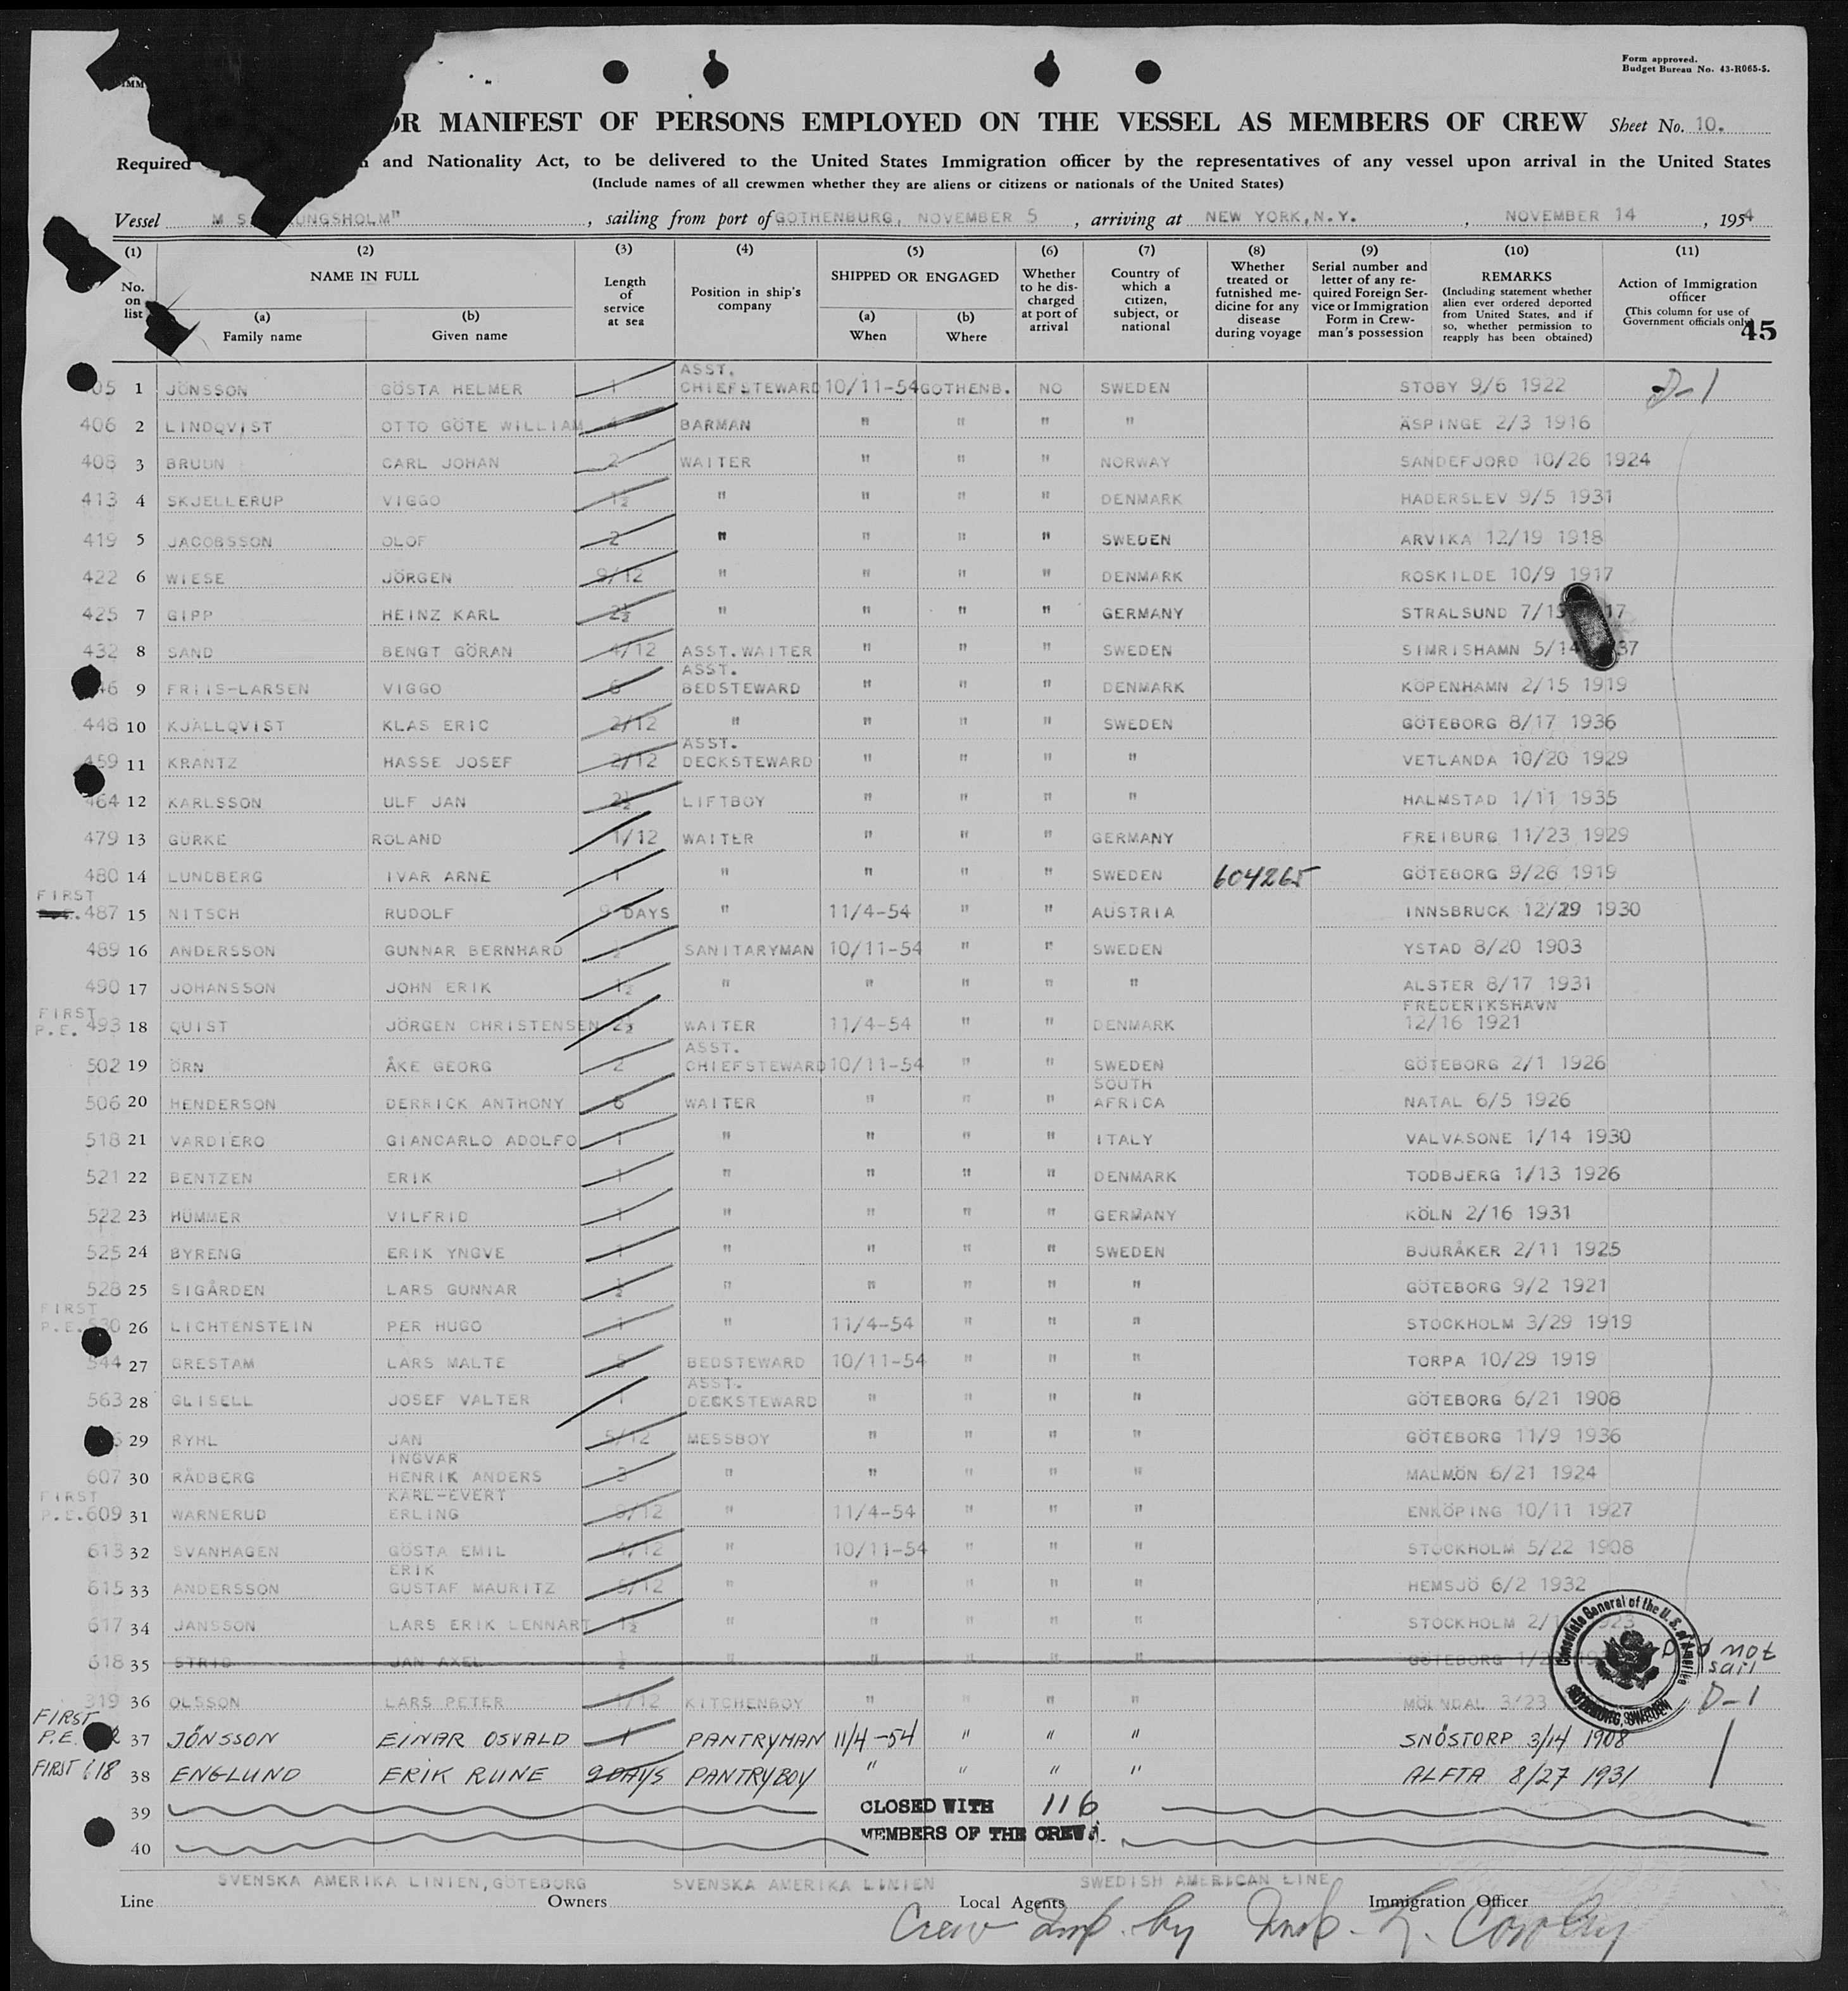 Form approved.
Budget Bureau No. 43-R065-5.
OR MANIFEST OF PERSONS EMPLOYED ON THE VESSEL AS MEMBERS OF CREW Sheet No. 10.
Required and Nationality Act, to be delivered to the United States Immigration officer by the representatives of any vessel upon arrival in the United States
(Include names of all crewmen whether they are aliens or citizens or nationals of the United States)
Vessel M S UNGSHOLM" , sailing from port of GOTHENBURG, NOVEMBER 5 , arriving at NEW YORK, N.Y. , NOVEMBER 14 , 1954
(1) (2) (3) (4) (5) (6) (7) (8) (9) (10) (11)
No. on list
NAME IN FULL
(a) Family name
(b) Given name
Length of service at sea
Position in ship's company
SHIPPED OR ENGAGED
(a) When
(b) Where
Whether to be discharged at port of arrival
Country of which a citizen, subject, or national
Whether treated or furnished medicine for any disease during voyage
Serial number and letter of any required Foreign Service or Immigration Form in Crewman's possession
REMARKS
(Including statement whether alien ever ordered deported from United States, and if so, whether permission to reapply has been obtained)
Action of Immigration officer
(This column for use of Government officials only)
45
05 1 JÖNSSON GÖSTA HELMER 1 ASST. CHIEFSTEWARD 10/11-54 GOTHENB. NO SWEDEN STOBY 9/6 1922 D-1
406 2 LINDQVIST OTTO GÖTE WILLIAM 4 BARMAN " " " " ÄSPINGE 2/3 1916
408 3 BRUUN CARL JOHAN 2 WAITER " " " NORWAY SANDEFJORD 10/26 1924
413 4 SKJELLERUP VIGGO 1½ " " " " DENMARK HADERSLEV 9/5 1931
419 5 JACOBSSON OLOF 2 " " " " SWEDEN ARVIKA 12/19 1918
422 6 WIESE JÖRGEN 9/12 " " " " DENMARK ROSKILDE 10/9 1917
425 7 GIPP HEINZ KARL 2½ " " " " GERMANY STRALSUND 7/1 17
432 8 SAND BENGT GÖRAN 4/12 ASST. WAITER " " " SWEDEN SIMRISHAMN 5/14 37
46 9 FRIIS-LARSEN VIGGO 6 ASST. BEDSTEWARD " " " DENMARK KÖPENHAMN 2/15 1919
448 10 KJÄLLQVIST KLAS ERIC 2/12 " " " " SWEDEN GÖTEBORG 8/17 1936
459 11 KRANTZ HASSE JOSEF 2/12 ASST. DECKSTEWARD " " " " VETLANDA 10/20 1929
464 12 KARLSSON ULF JAN 2½ LIFTBOY " " " " HALMSTAD 1/11 1935
479 13 GÜRKE ROLAND 1/12 WAITER " " " GERMANY FREIBURG 11/23 1929
480 14 LUNDBERG IVAR ARNE 1 " " " " SWEDEN 604265 GÖTEBORG 9/26 1919
FIRST 487 15 NITSCH RUDOLF 9 DAYS " 11/4-54 " " AUSTRIA INNSBRUCK 12/29 1930
489 16 ANDERSSON GUNNAR BERNHARD SANITARYMAN 10/11-54 " " SWEDEN YSTAD 8/20 1903
490 17 JOHANSSON JOHN ERIK 1½ " " " " " ALSTER 8/17 1931
FIRST P.E. 493 18 QUIST JÖRGEN CHRISTENSEN 2½ WAITER 11/4-54 " " DENMARK FREDERIKSHAVN 12/16 1921
502 19 ÖRN ÅKE GEORG 2 ASST. CHIEFSTEWARD 10/11-54 " " SWEDEN GÖTEBORG 2/1 1926
506 20 HENDERSON DERRICK ANTHONY 6 WAITER " " " SOUTH AFRICA NATAL 6/5 1926
518 21 VARDIERO GIANCARLO ADOLFO 1 " " " " ITALY VALVASONE 1/14 1930
521 22 BENTZEN ERIK 1 " " " " DENMARK TODBJERG 1/13 1926
522 23 HÜMMER VILFRID 1 " " " " GERMANY KÖLN 2/16 1931
525 24 BYRENG ERIK YNGVE 1 " " " " SWEDEN BJURÅKER 2/11 1925
528 25 SIGÅRDEN LARS GUNNAR ½ " " " " " GÖTEBORG 9/2 1921
FIRST P.E. 530 26 LICHTENSTEIN PER HUGO 1 " 11/4-54 " " " STOCKHOLM 3/29 1919
544 27 GRESTAM LARS MALTE 5 BEDSTEWARD 10/11-54 " " " TORPA 10/29 1919
563 28 GLISELL JOSEF VALTER 1 ASST. DECKSTEWARD " " " " GÖTEBORG 6/21 1908
29 RYHL JAN 5/12 MESSBOY " " " " GÖTEBORG 11/9 1936
607 30 RÅDBERG INGVAR HENRIK ANDERS 3 " " " " " MALMÖN 6/21 1924
FIRST P.E. 609 31 WARNERUD KARL-EVERT ERLING /12 " 11/4-54 " " " ENKÖPING 10/11 1927
613 32 SVANHAGEN GÖSTA EMIL 4/12 " 10/11-54 " " " STOCKHOLM 5/22 1908
615 33 ANDERSSON ERIK GUSTAF MAURITZ 5/12 " " " " " HEMSJÖ 6/2 1932
617 34 JANSSON LARS ERIK LENNART 1½ " " " " " STOCKHOLM 2/ 923
618 35 STRID JAN AXEL ½ " " " " " GÖTEBORG 1/2 Did not sail
319 36 OLSSON LARS PETER /12 KITCHENBOY " " " " MÖLNDAL 3/23 D-1
FIRST P.E. 37 JÖNSSON EINAR OSVALD 1 PANTRYMAN 11/4-54 " " " SNÖSTORP 3/14 1908
FIRST 618 38 ENGLUND ERIK RUNE 9 DAYS PANTRYBOY " " " " ALFTA 8/27 1931
Consulate General of the U.S. of America
GOTHENBURG, SWEDEN
39 CLOSED WITH 116
40 MEMBERS OF THE CREW.
Line SVENSKA AMERIKA LINIEN, GÖTEBORG Owners SVENSKA AMERIKA LINIEN Local Agents SWEDISH AMERICAN LINE Immigration Officer
Crew Insp. by Insp.